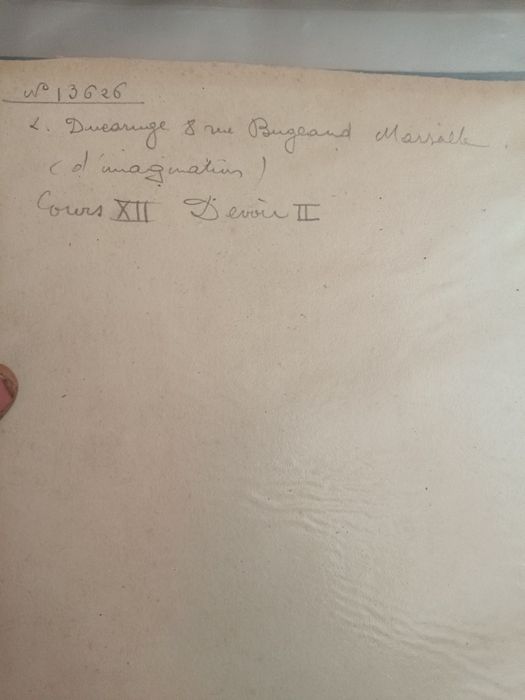 N° 13626
L. Ducaruge 8 rue Bugeaud Marseille.
(d'imagination)
Cours XII Devoir II